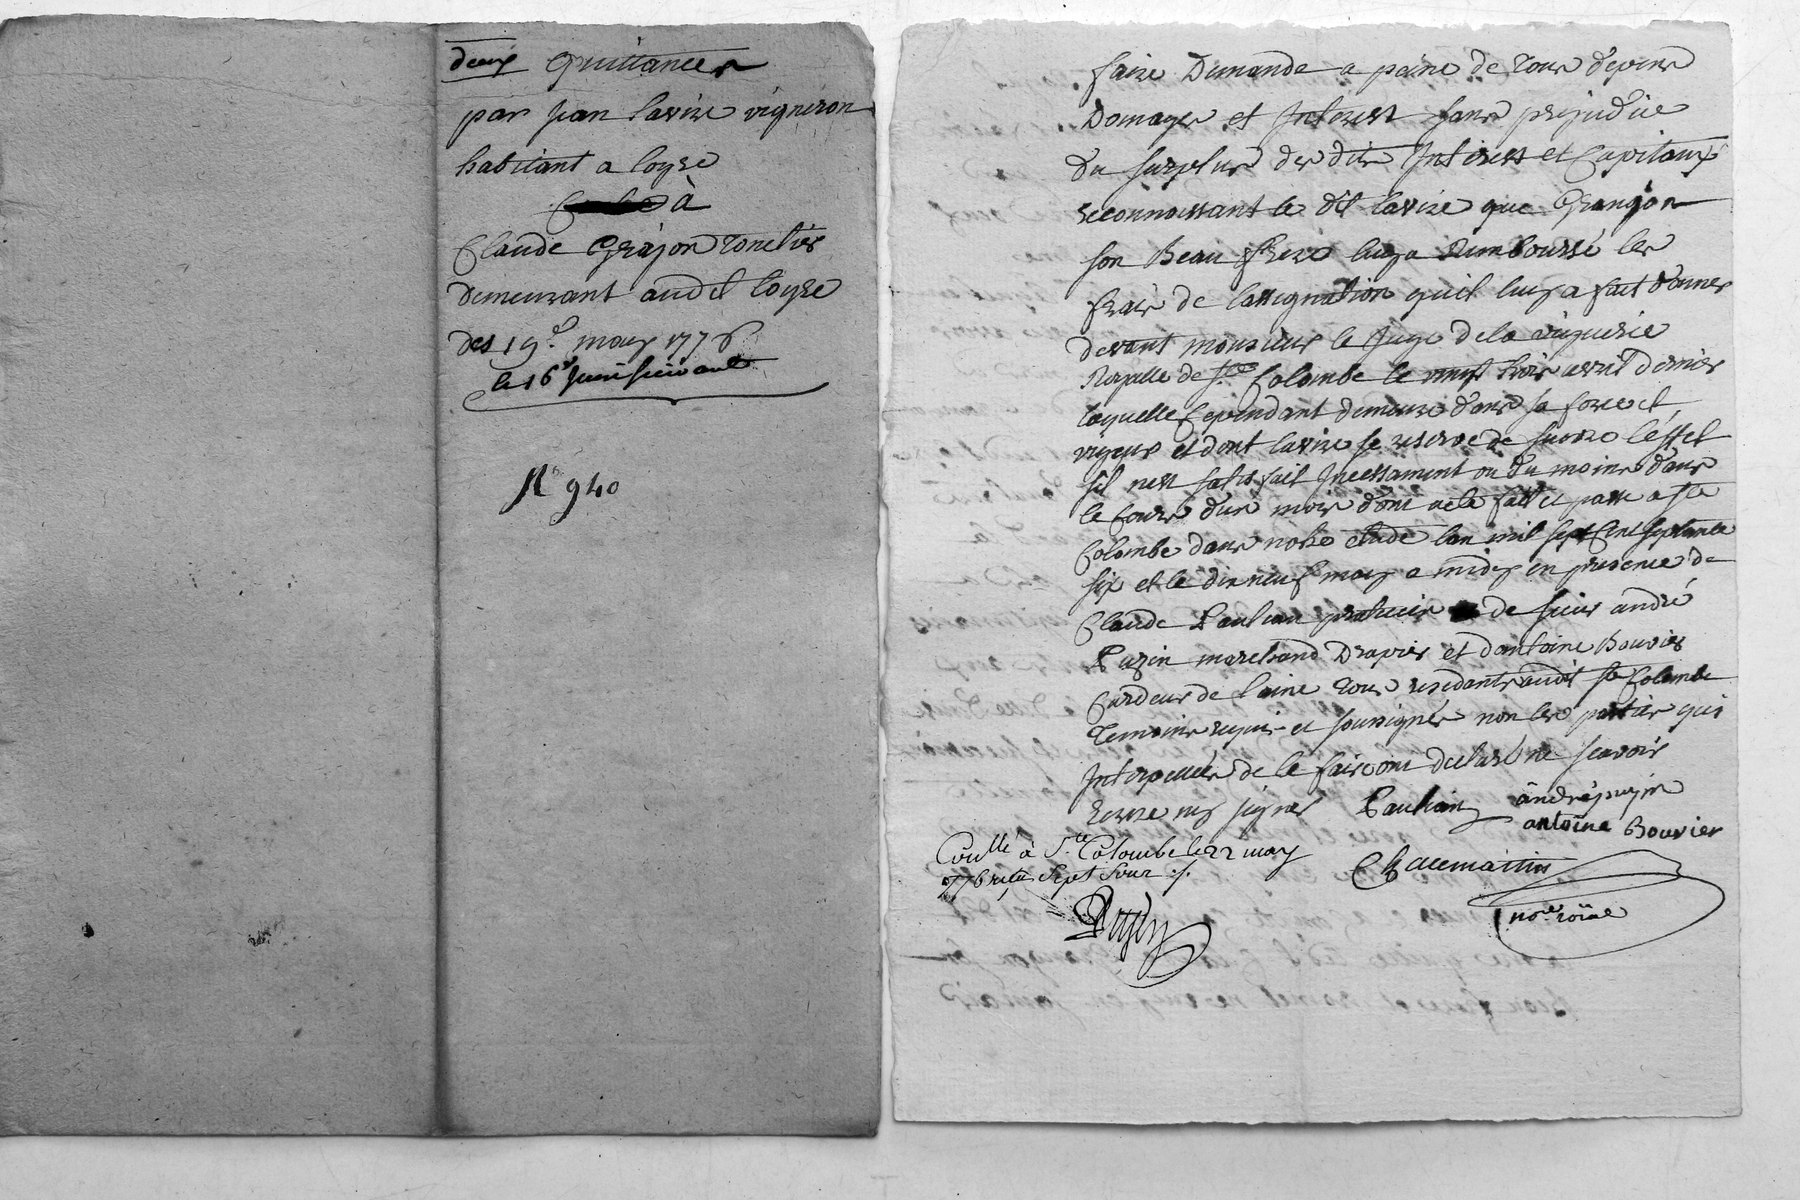 deux Quittances
par jean lavire vigneron
habitant a loyre
à
Claude Grajon tonelier
demeurant audit loyre
des 19e may 1776
le 16e juin suivant
No 940
faire Demande a peine de tous depens
Domages et Interest sans prejudice
du surplus des dits Interests et Capitaux
reconnoissant le dit lavire que Grangon
son Beau frere luy a Rembourse les
frais de lassignation quil luy a fait donner
devant monsieur le Juge de la viguerie
Royalle de Ste Colombe le vingt trois avril dernier
laquelle Cependant demeure dans sa force et
vigeur et dont lavire se reserve de suivre leffet
sil nest satisfait Incessament ou du moins dans
le Cours dun mois dont acte fait et passé a Ste
Colombe dans notre etude lan mil sept Cent septante
six et le dix neuf may a midy en presence de
Claude Paulian praticien de sieur andré
Puzin marchand Drapier et dantoine Bouvier
Cardeur de laine tous residants audit Ste Colombe
temoins requis et soussignés non les parties qui
Interpellés de le faire ont declaré ne scavoir
Ecrire ny signer Paulian andré puzin
antoine Bouvier
Conllé à Ste Colombe le 22 may
1776 reçu Sept Sous
Chaumartin
nore roïal